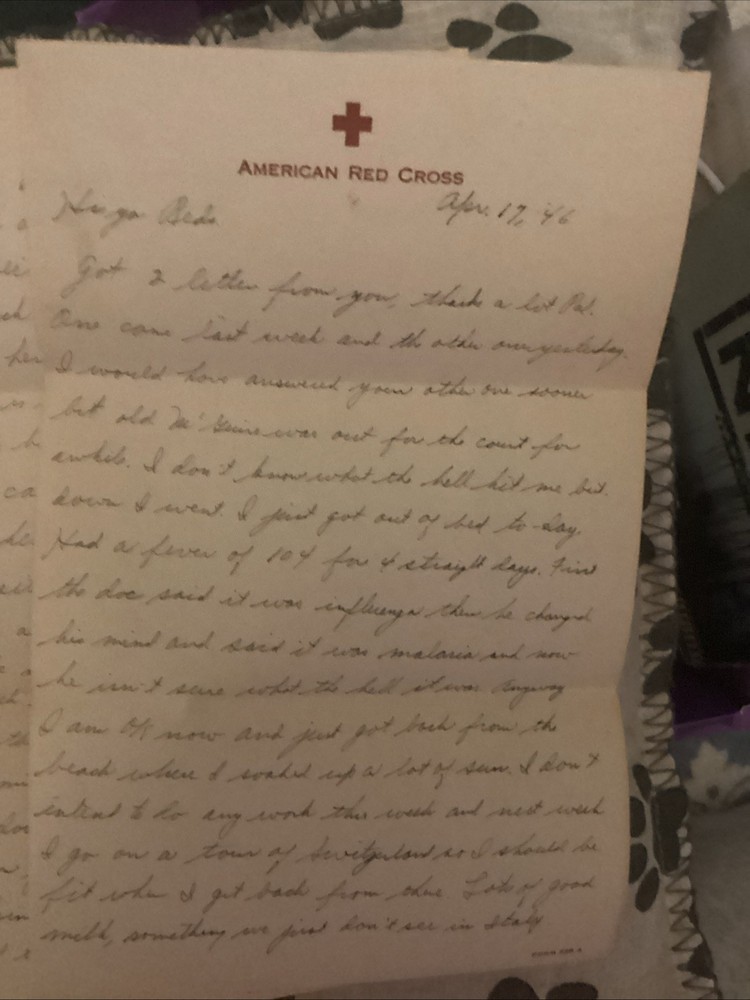 AMERICAN RED CROSS
Apr. 17, '46
Hi ya Beds.
Got 2 letter from you, thanks a lot Pal.
One came last week and the other one yesterday.
I would have answered your other one sooner
but old Mc'Guire was out for the count for
awhile. I don't know what the hell hit me but
down I went. I just got out of bed to-day.
Had a fever of 104 for 4 straight days. First
the doc said it was influenza then he changed
his mind and said it was malaria and now
he isn't sure what the hell it was. Anyway
I am OK now and just got back from the
beach where I soaked up a lot of sun. I don't
intend to do any work this week and next week
I go on a tour of Switzerland so I should be
fit when I get back from there. Lots of good
milk, something we just don't see in Italy